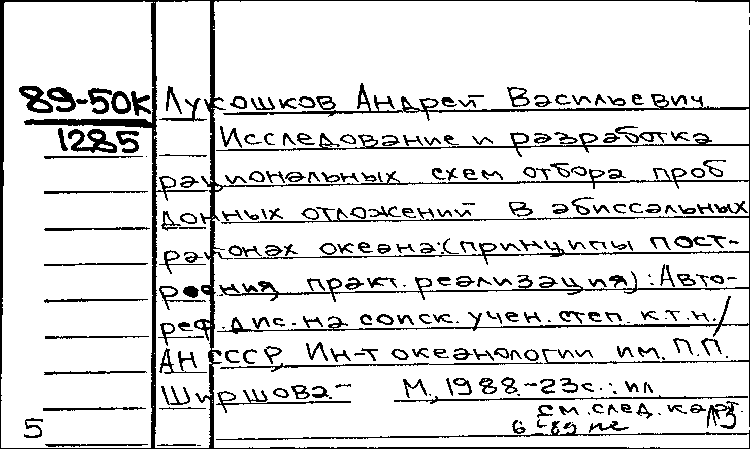 89-50К Лукошков, Андрей Васильевич
1285 Исследование и разработка
рациональных схем отбора проб
донных отложений в абиссальных
районах океана:(принципы пост-
роения практ. реализация):Авто-
реф.дис.на соиск.учен.степ.к.т.н./
АН СССР, Ин-т океанологии им. П.П.
Ширшова.- М.,1988.-23с.:ил.
см.след.карт.
5 6-89